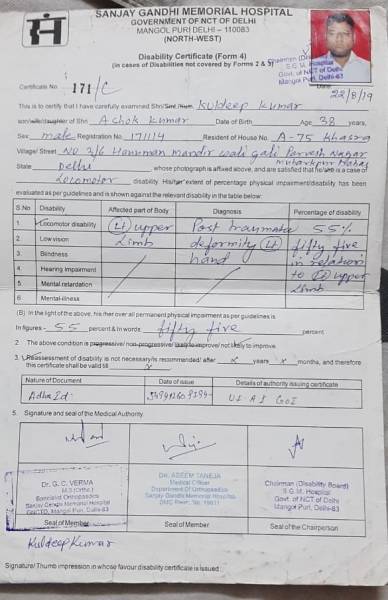 SANJAY GANDHI MEMORIAL HOSPITAL
GOVERNMENT OF NCT OF DELHI
MANGOL PURI DELHI – 110083
(NORTH-WEST)
Disability Certificate (Form 4)
(in cases of Disabilities not covered by Forms 2 & 3)
Chairman (Dis
S.G.M. Hospital
Govt. of NCT of Delhi
Mangol Puri, Delhi-83
Certificate No. 171/C
Date: 22/8/19
This is to certify that I have carefully examined Shri/Smt./Kum. Kuldeep Kumar
son/wife/daughter of Shri Ashok Kumar Date of Birth Age 38 years,
Sex male Registration No. 171114 Resident of House No. A-75 Khasra
Village/ Street No 3/6 Hanuman mandir wali gali Parvesh Nagar
Mubarkpur Dabas
State Delhi, whose photograph is affixed above, and are satisfied that he/she is a case of
Locomotor disability. His/her extent of percentage physical impairment/disability has been
evaluated as per guidelines and is shown against the relevant disability in the table below:
S.No Disability Affected part of Body Diagnosis Percentage of disability
1. Locomotor disability (Lt) upper Limb Post traumatic deformity (Lt) hand 55% fifty five in relation to (Lt) upper limb
2. Low vision
3. Blindness
4. Hearing Impairment
5. Mental retardation
6. Mental-illness
(B) In the light of the above, his/her over all permanent physical impairment as per guidelines is
In figures - 55 percent & In words fifty five percent
2. The above condition is progressive/ non-progressive/ likely to improve/ not likely to improve.
3. Reassessment of disability is not necessary/is recommended/ after x years x months, and therefore
this certificate shall be valid till x
Nature of Document Date of issue Details of authority issuing certificate
Adhar Id: UIAI GOI
5. Signature and seal of the Medical Authority.
Dr. G. C. VERMA
M.S (Ortho.)
Specialist Orthopaedics
Sanjay Gandhi Memorial Hospital
GNCTD, Mangol Puri, Delhi-83
DR. ASEEM TANEJA
Medical Officer
Department Of Orthopaedics
Sanjay Gandhi Memorial Hospital
Chairman (Disability Board)
S.G.M. Hospital
Govt. of NCT of Delhi
Mangol Puri, Delhi-83
Seal of Member Seal of Member Seal of the Chairperson
Kuldeep Kumar
Signature/ Thumb impression in whose favour disability certificate is issued: